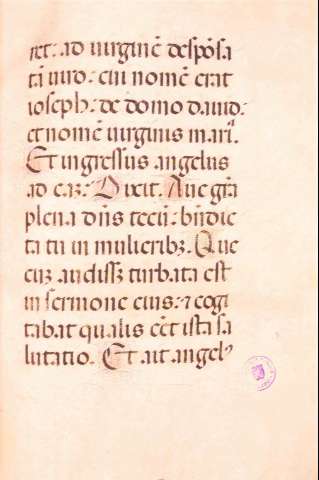 ret: ad uirginē despōsa
tā uiro: cui nomē erat
ioseph: de domo dauid:
et nomē uirginis mariꝰ.
Et ingressus angelus
ad eaꝫ: Dixit. Aue grā
plena dn̄s tecū: bn̄dic
ta tu in mulieribꝫ. Que
cuꝫ audissꝫ turbata est
in sermone eius: ⁊ cogi
tabat qualis eēt ista sa
lutatio. Et ait angelꝰ